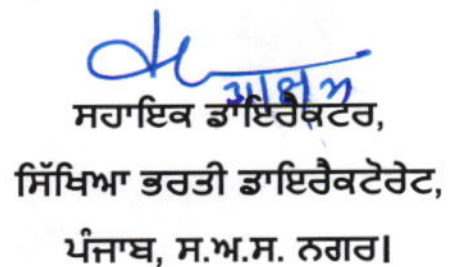 ਸਹਾਇਕ ਡਾਇਰੈਕਟਰ,
ਸਿੱਖਿਆ ਭਰਤੀ ਡਾਇਰੈਕਟੋਰੇਟ,
ਪੰਜਾਬ, ਸ.ਅ.ਸ. ਨਗਰ।